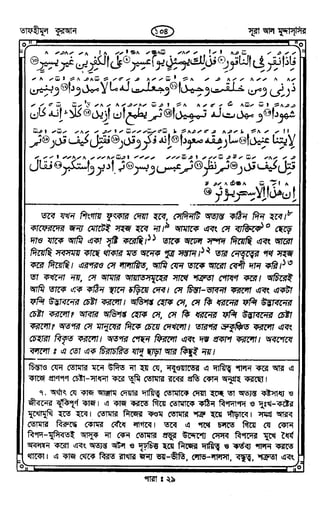 তাফহীমুল কুরআন ১০৪ সূরা আল মুদ্দাস্সির
فَإِذَا نُقِرَ فِي النَّاقُورِ ۝ فَذَٰلِكَ يَوْمَئِذٍ يَوْمٌ عَسِيرٌ ۝ عَلَى الْكَٰفِرِينَ غَيْرُ يَسِيرٍ ۝
ذَرْنِي وَمَنْ خَلَقْتُ وَحِيدًا ۝ وَجَعَلْتُ لَهُ مَالًا مَمْدُودًا ۝ وَبَنِينَ
شُهُودًا ۝ وَمَهَّدْتُ لَهُ تَمْهِيدًا ۝ ثُمَّ يَطْمَعُ أَنْ أَزِيدَ ۝ كَلَّا ۖ إِنَّهُ كَانَ
لِآيَٰتِنَا عَنِيدًا ۝ سَأُرْهِقُهُ صَعُودًا ۝ إِنَّهُ فَكَّرَ وَقَدَّرَ ۝ فَقُتِلَ كَيْفَ قَدَّرَ ۝ ثُمَّ
قُتِلَ كَيْفَ قَدَّرَ ۝ ثُمَّ نَظَرَ ۝ ثُمَّ عَبَسَ وَبَسَرَ ۝ ثُمَّ أَدْبَرَ وَاسْتَكْبَرَ ۝ فَقَالَ
إِنْ هَٰذَا إِلَّا سِحْرٌ يُؤْثَرُ ۝
তবে যখন শিংগায় ফুৎকার দেয়া হবে, সেদিনটি অত্যন্ত কঠিন দিন হবে।৮
কাফেরদের জন্য মোটেই সহজ হবে না।৯ আমাকে এবং সে ব্যক্তিকে১০ ছেড়ে
দাও যাকে আমি একা সৃষ্টি করেছি।১১ তাকে অঢেল সম্পদ দিয়েছি এবং আরো
দিয়েছি সবসময় কাছে থাকার মত অনেক পুত্র সন্তান।১২ তার নেতৃত্বের পথ সহজ
করে দিয়েছি। এরপরও সে লালায়িত, আমি যেন তাকে আরো বেশী দান করি।১৩
তা কখনো নয়, সে আমার আয়াতসমূহের সাথে শত্রুতা পোষণ করে। অচিরেই
আমি তাকে এক কঠিন স্থানে চড়িয়ে দেব। সে চিন্তা-ভাবনা করলো এবং একটা
ফন্দি উদ্ভাবনের চেষ্টা করলো। অভিশপ্ত হোক সে, সে কি ধরনের ফন্দি উদ্ভাবনের
চেষ্টা করলো। আবার অভিশপ্ত হোক সে, সে কি ধরনের ফন্দি উদ্ভাবনের চেষ্টা
করলো। অতপর সে মানুষের দিকে চেয়ে দেখলো। তারপর ভ্রুকুঞ্চিত করলো এবং
চেহারা বিকৃত করলো। অতপর পেছন ফিরলো এবং দম্ভ প্রকাশ করলো। অবশেষে
বললো ঃ এ তো এক চিরাচরিত যাদু ছাড়া আর কিছুই নয়।
চিন্তাও যেন তোমার মনে উদিত না হয় যে, নবুওয়াতের এ দায়িত্ব পালন করে আর এ
কাজে প্রাণপণ চেষ্টা-সাধনা করে তুমি তোমার রবের প্রতি কোন অনুগ্রহ করছো।
৭. অর্থাৎ যে কাজ আঞ্জাম দেয়ার দায়িত্ব তোমাকে দেয়া হচ্ছে তা অত্যন্ত কষ্টসাধ্য ও
জীবনের ঝুঁকিপূর্ণ কাজ। এ কাজ করতে গিয়ে তোমাকে কঠিন বিপদাপদ ও দুঃখ-কষ্টের
মুখোমুখি হতে হবে। তোমার নিজের কওম তোমার শত্রু হয়ে দাঁড়াবে। সমগ্র আরব
তোমার বিরুদ্ধে কোমর বেঁধে লাগবে। তবে এ পথে চলতে গিয়ে যে কোন
বিপদ-মুসিবতই আসুক না কেন তোমার প্রভুর উদ্দেশ্যে সেসব বিপদের মুখে ধৈর্য
অবলম্বন করো এবং অত্যন্ত অটল ও দৃঢ়চিত্ত হয়ে নিজের দায়িত্ব ও কর্তব্য পালন করতে
থাকো। এ কাজ থেকে বিরত রাখার জন্য ভয়-ভীতি, লোভ-লালসা, বন্ধুত্ব, শত্রুতা এবং
পারা ঃ ২৯